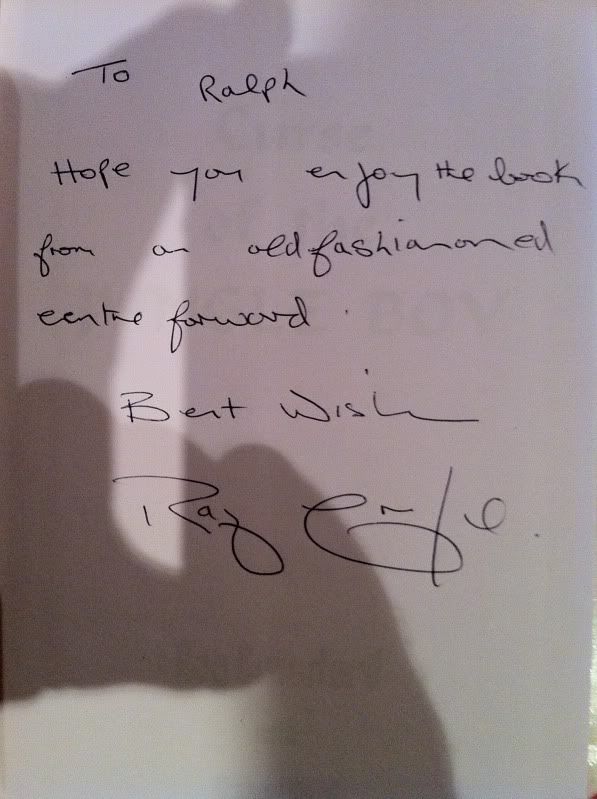 To Ralph
Hope you enjoy the book
from an old fashianoned
centre forward.
Best Wish
Ray